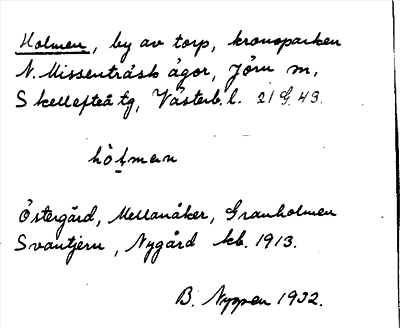 Holmen, by av torp, kronoparken
N. Missenträsk ägor, Jörn m,
Skellefteå tg, Västerb. l. 21 G. 43.
hòl̨man
Östergård, Mellanåker, Granholmen
Svantjern, Nygård kb. 1913.
B. Nygren 1932.